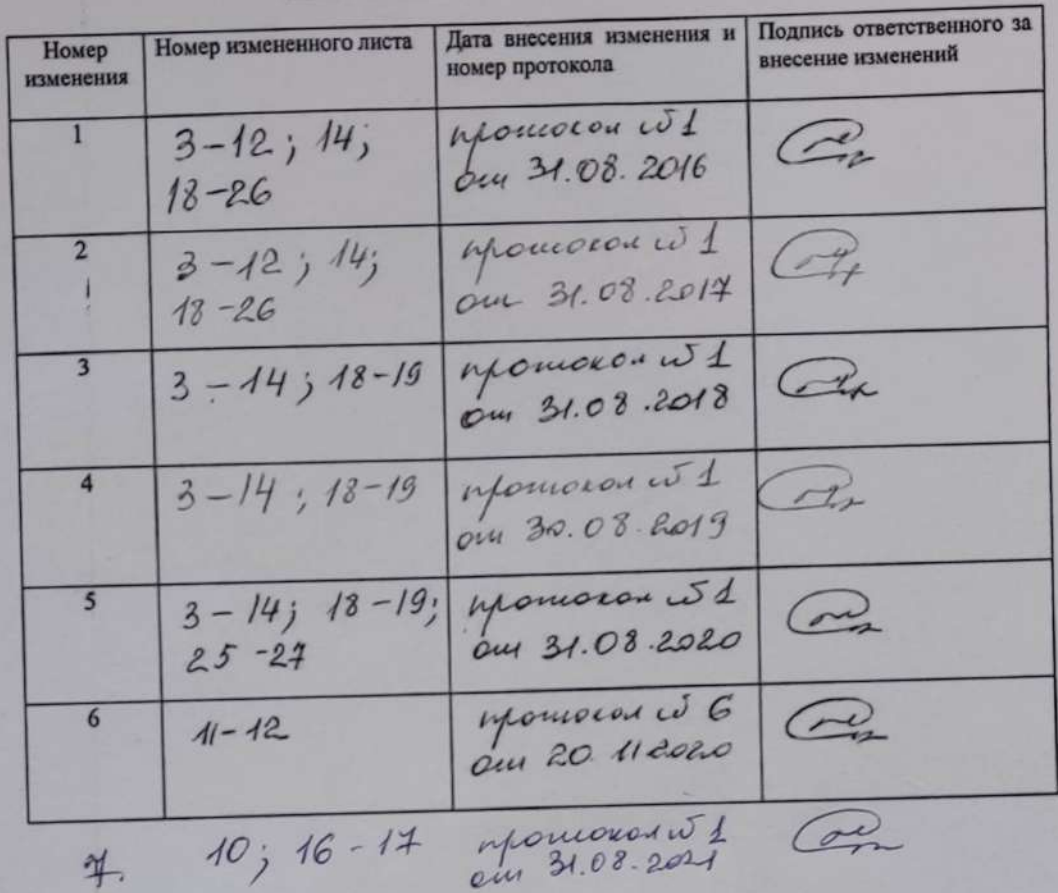 Номер изменения
Номер измененного листа
Дата внесения изменения и номер протокола
Подпись ответственного за внесение изменений
1
3-12; 14;
18-26
протокол №1
от 31.08.2016
2
3-12; 14;
18-26
протокол №1
от 31.08.2017
3
3-14; 18-19
протокол №1
от 31.08.2018
4
3-14; 18-19
протокол №1
от 30.08.2019
5
3-14; 18-19;
25-27
протокол №1
от 31.08.2020
6
11-12
протокол №6
от 20.11.2020
7.
10; 16-17
протокол №1
от 31.08.2021